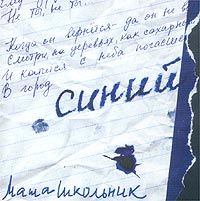 Не ты, не ты...
Когда он вернётся - да он не в
Смотри, на деревьях, как сахарн
И катится с неба погасше
В город
синий
Маша Школьник